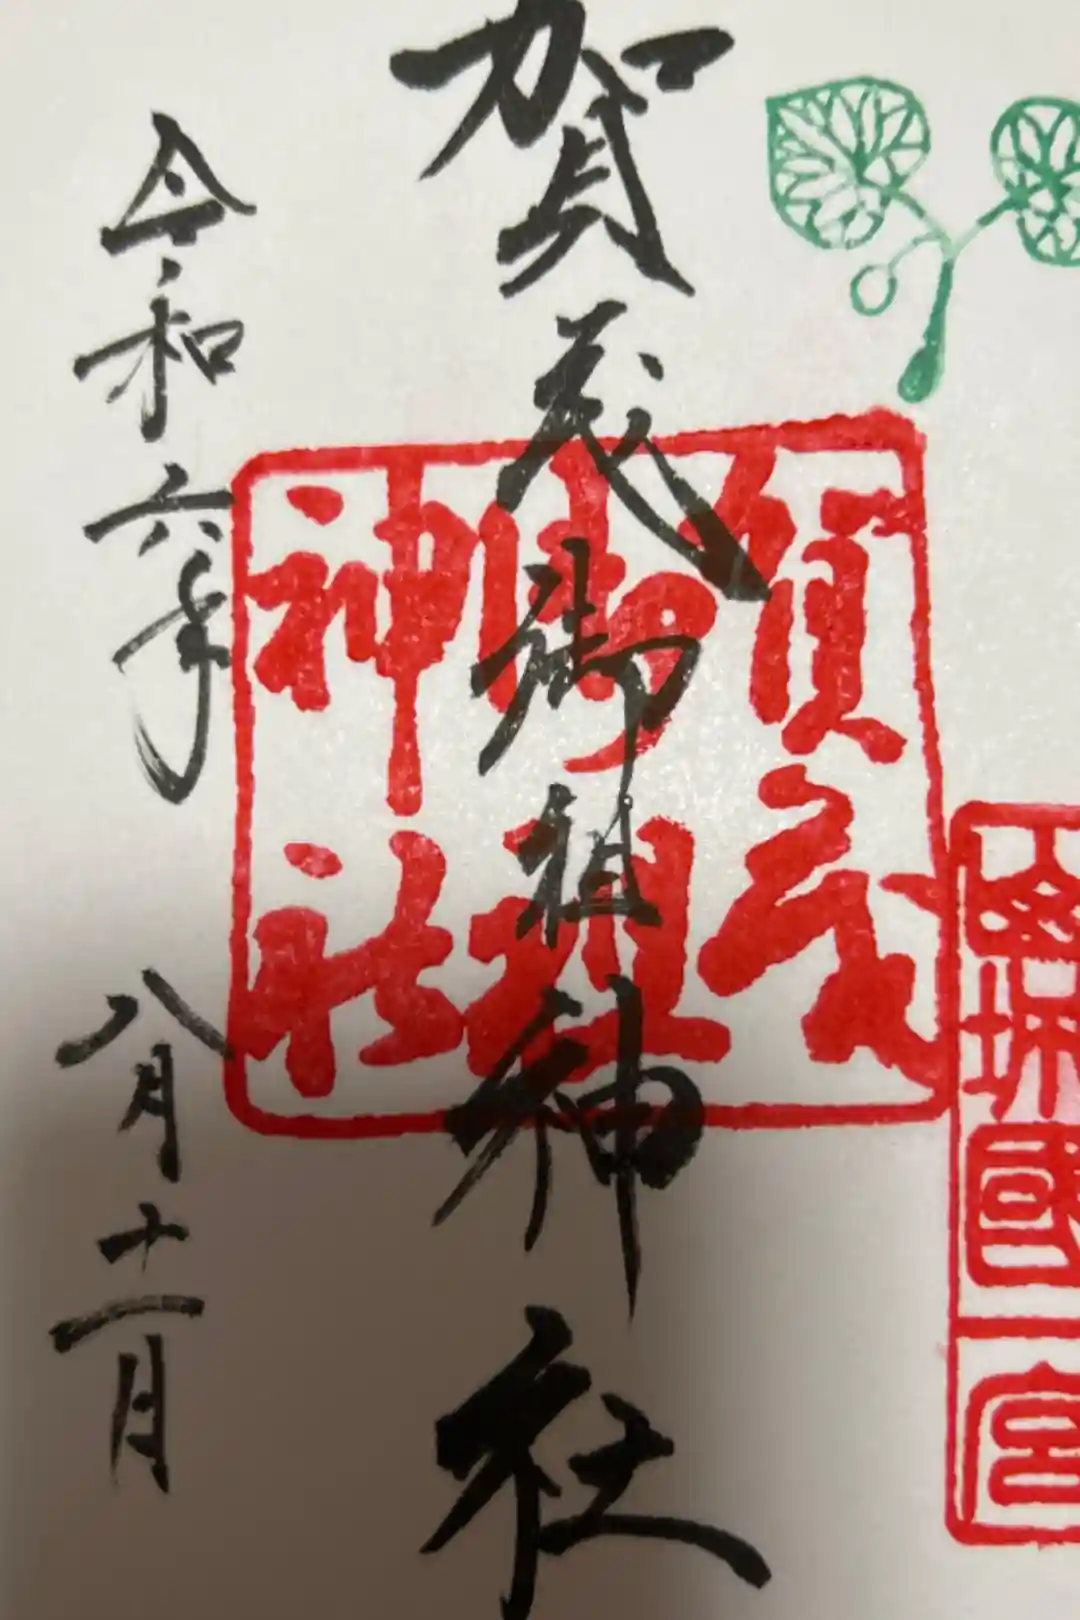 山城國
一宮
賀茂御祖神社
賀茂
御祖
神社
令和六年 八月十一日